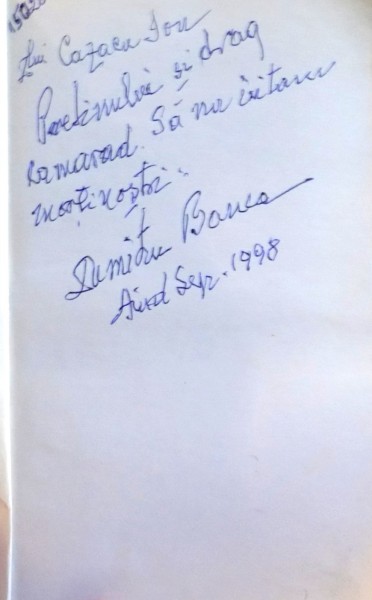 Lui Cazacu Ion
Prietenului și drag
camarad. Să nu uităm
morții noștri..
Dumitru Banea
Aiud Sep. 1998